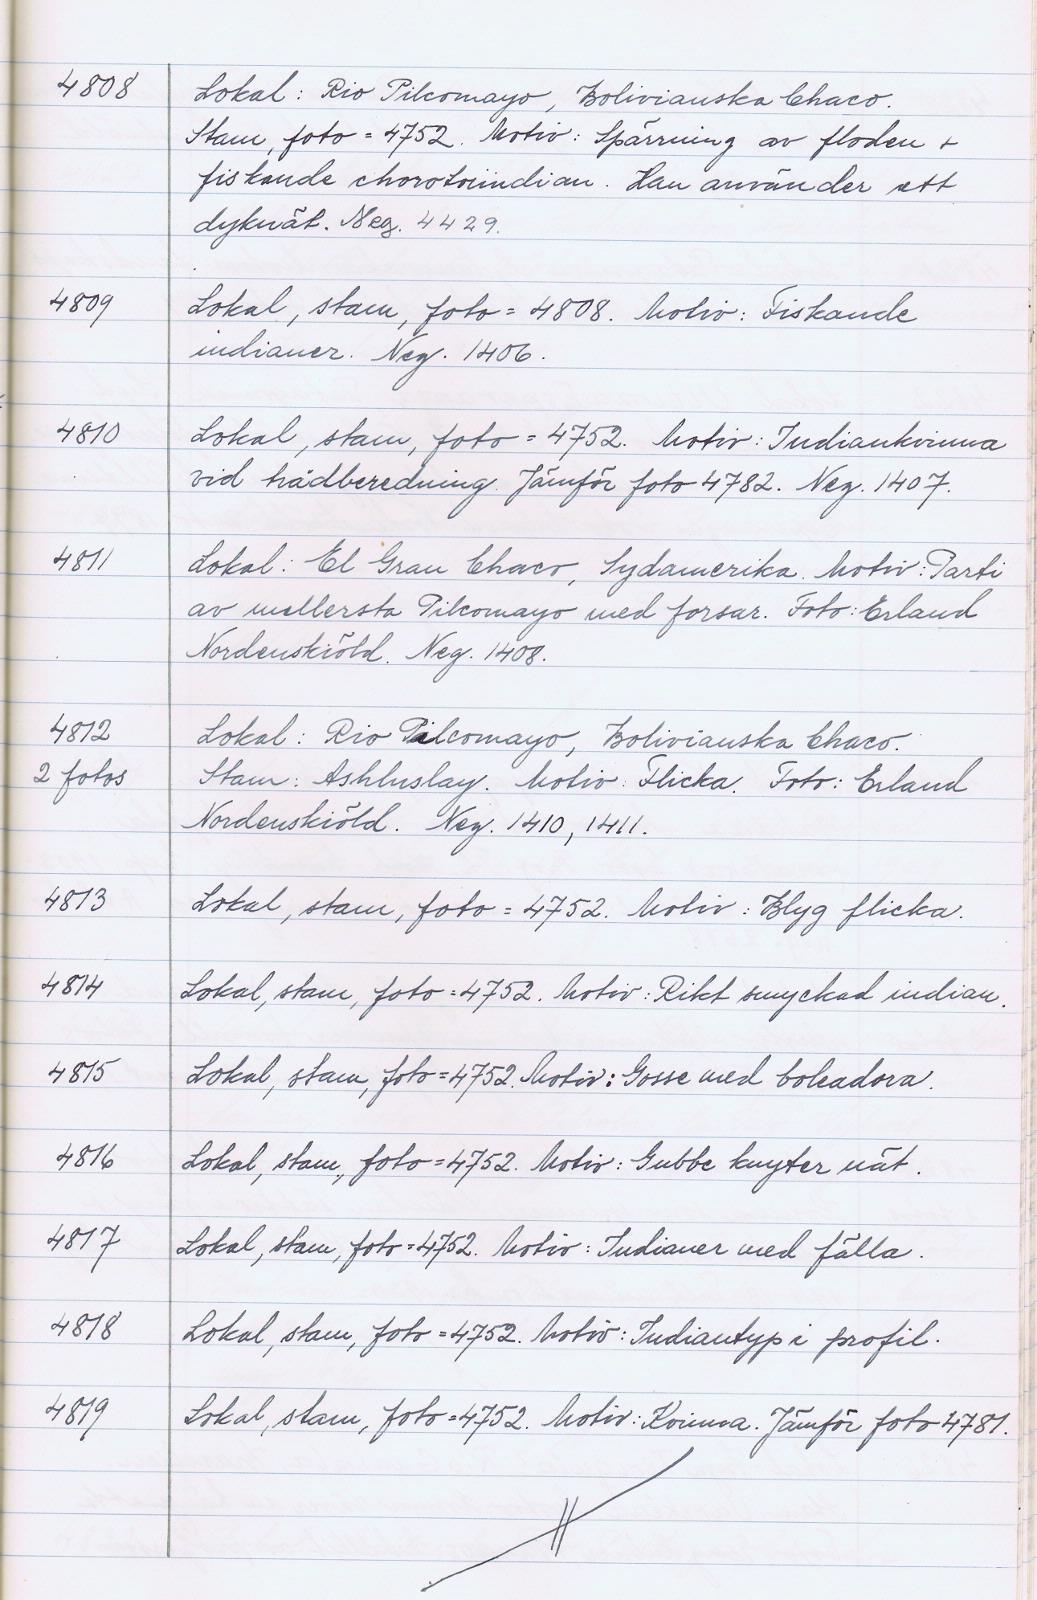 4808 Lokal: Rio Pilcomayo, Bolivianska Chaco.
Stam, foto = 4752. Motiv: Spärrning av floden +
fiskande chorotiindian. Han använder ett
dyknät. Neg. 4429.
4809 Lokal, stam, foto = 4808. Motiv: Fiskande
indianer. Neg. 1406.
4810 Lokal, stam, foto = 4752. Motiv: Indiankvinna
vid trådberedning. Jämför foto 4782. Neg. 1407.
4811 Lokal: El Gran Chaco, Sydamerika. Motiv: Parti
av mellersta Pilcomayo med forsar. Foto: Erland
Nordenskiöld. Neg. 1408.
4812 Lokal: Rio Pilcomayo, Bolivianska Chaco.
2 fotos Stam: Ashluslay. Motiv: Flicka. Foto: Erland
Nordenskiöld. Neg. 1410, 1411.
4813 Lokal, stam, foto = 4752. Motiv: Blyg flicka.
4814 Lokal, stam, foto = 4752. Motiv: Rikt smyckad indian.
4815 Lokal, stam, foto = 4752. Motiv: Gosse med boleadora.
4816 Lokal, stam, foto = 4752. Motiv: Gubbe knyter nät.
4817 Lokal, stam, foto = 4752. Motiv: Indianer med fälla.
4818 Lokal, stam, foto = 4752. Motiv: Indiantyp i profil.
4819 Lokal, stam, foto = 4752. Motiv: Kvinna. Jämför foto 4781.